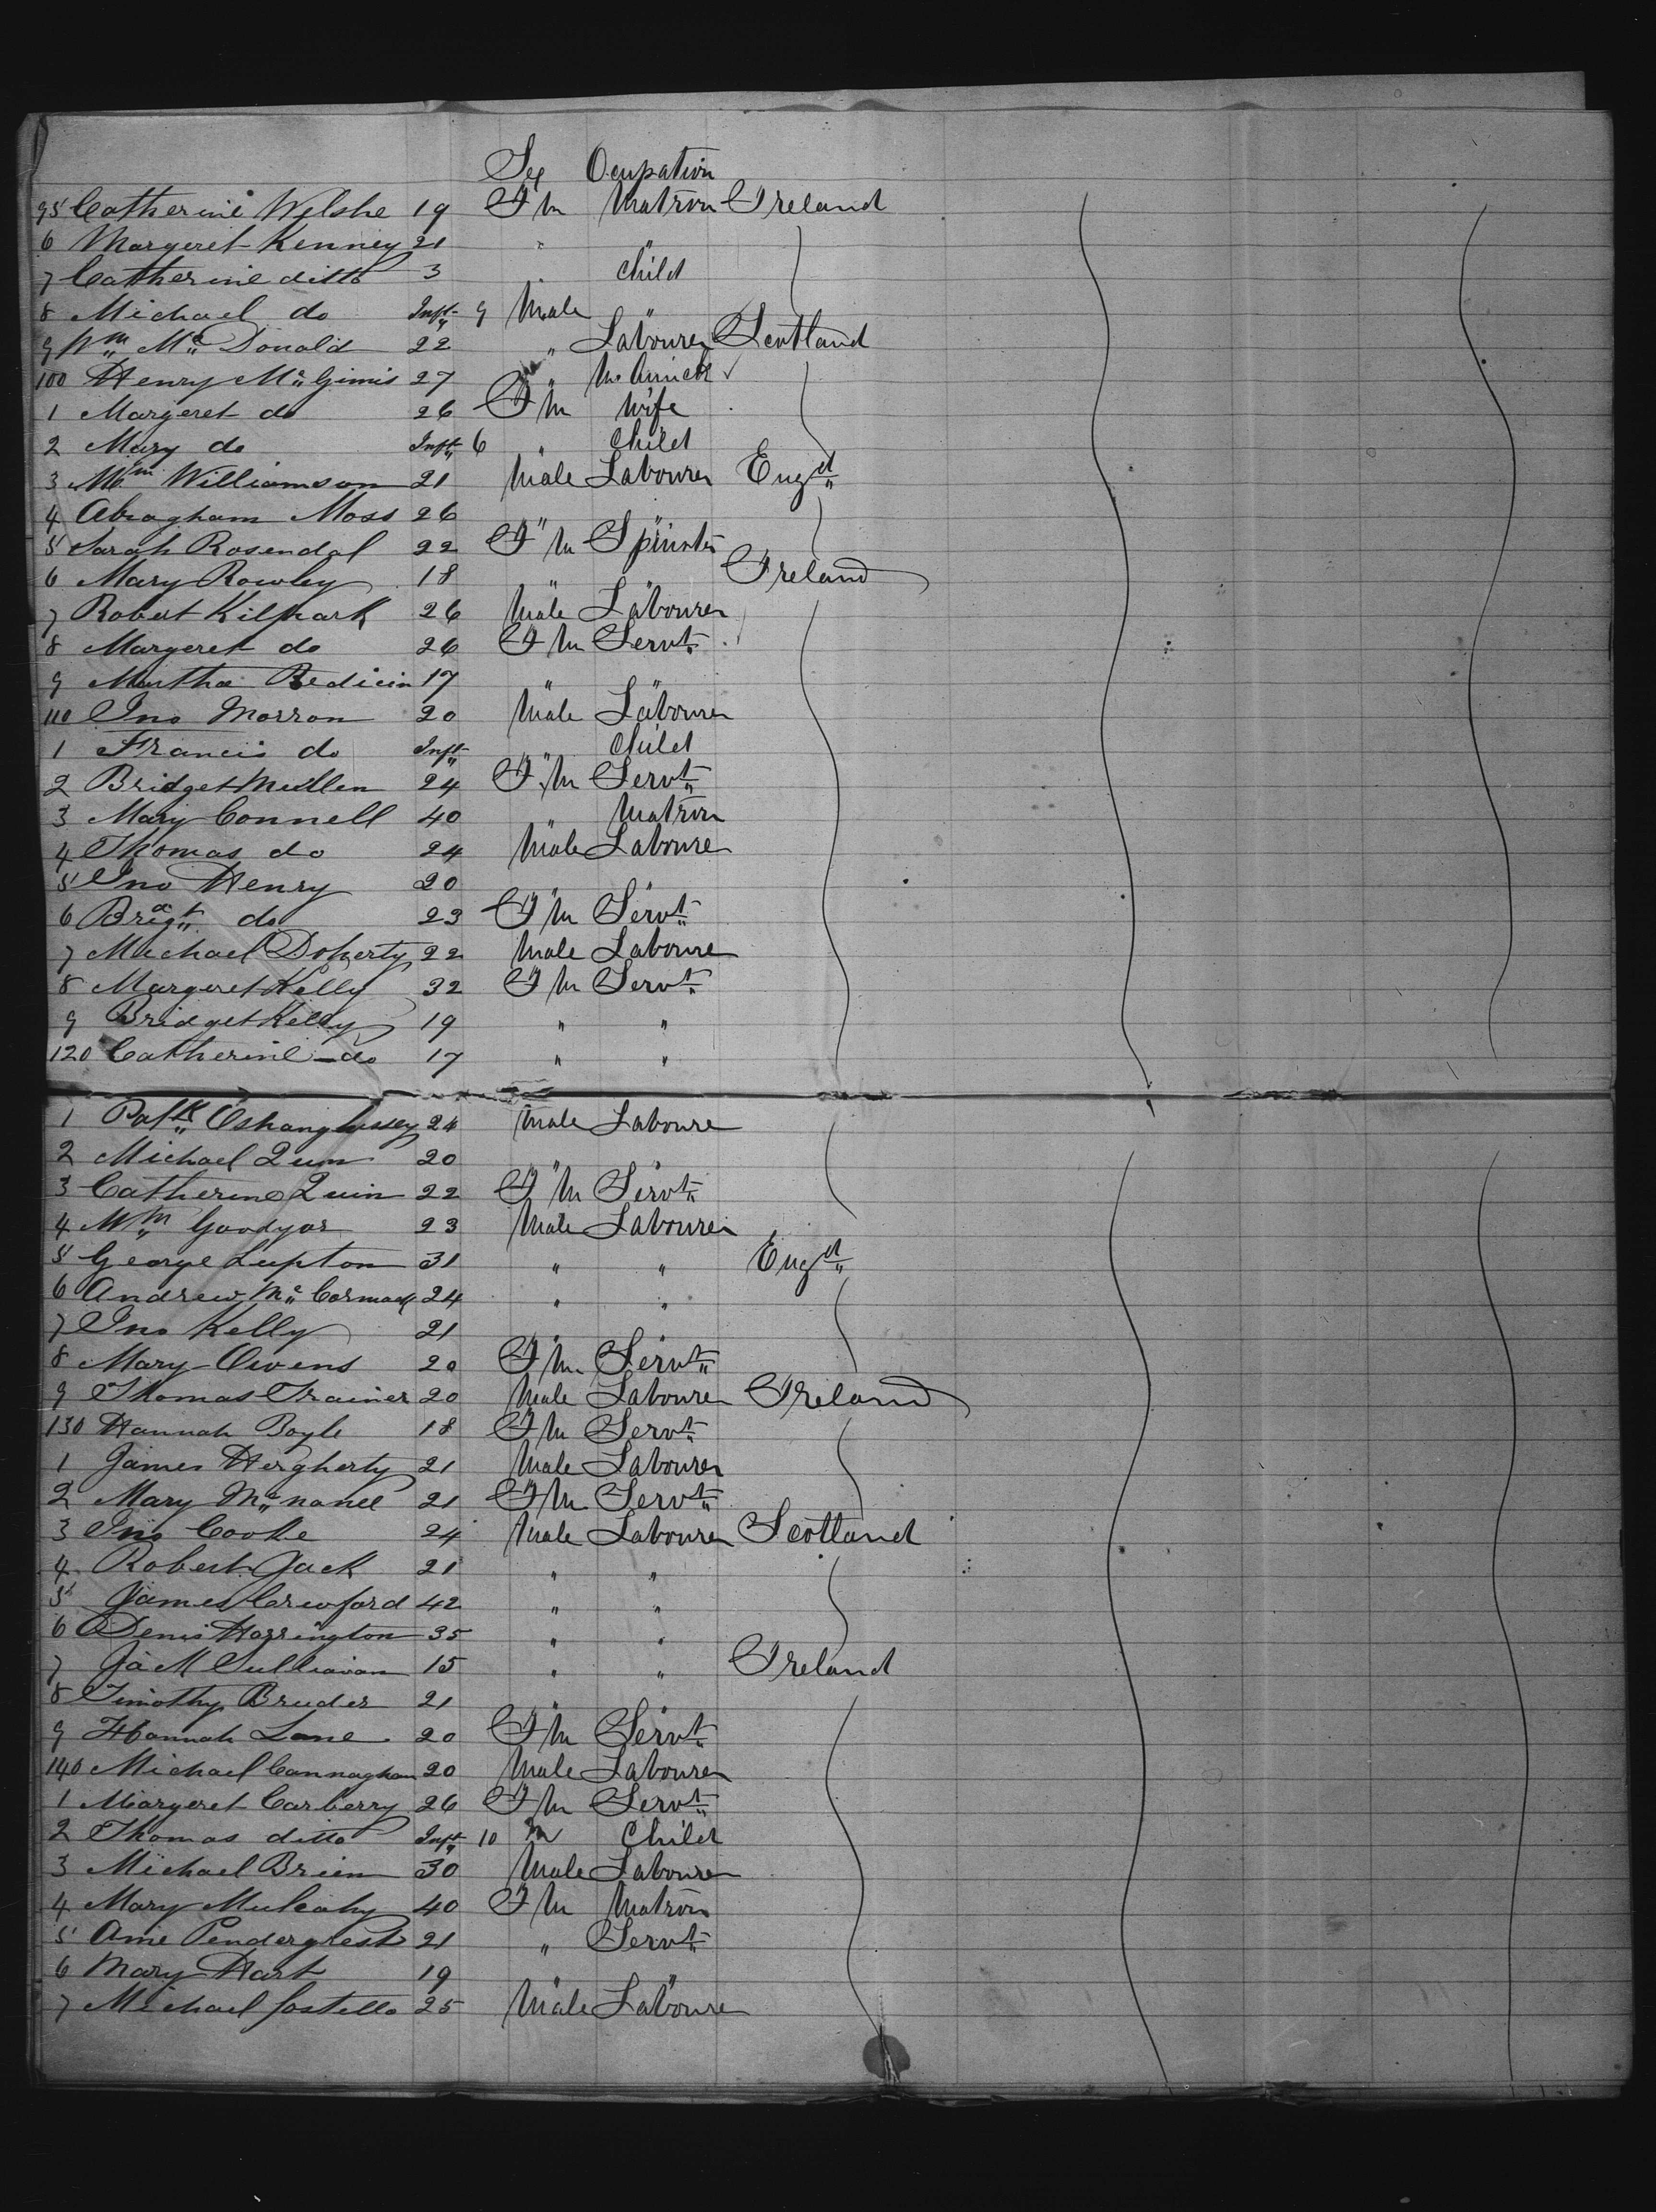 Sex Ocupation
95 Catherine Welshe 19 Fm Matron Ireland
6 Margeret Kenney 21 " "
7 Catherine ditto 3 " Child
8 Michael do Inft 9 Male "
9 Wm Mc Donald 22 " Labourer Scotland
100 Henry Mc Ginnis 27 "
1 Margeret do 26 Fm Wife
2 Mary do Inft 6 " Child
3 Wm Williamson 21 Male Labourer Engd
4 Abragham Moss 26 " "
5 Sarah Rosendal 22 Fm Spinster
6 Mary Rowley 18 " " Ireland
7 Robert Kilpark 26 Male Labourer
8 Margeret do 26 Fm Servt
9 Martha Redicin 17 " "
110 Jno Morron 20 Male Labourer
1 Francis do Inft " Child
2 Bridget Mullen 24 Fm Servt
3 Mary Connell 40 " Matron
4 Thomas do 24 Male Laboure
5 Jno Henry 20 " "
6 Brigt do 23 Fm Servt
7 Michael Doherty 22 Male Laboure
8 Margeret Kelly 32 Fm Servt
9 Bridget Kelly 19 " "
120 Catherine do 17 " "
1 Patk Oshanghussey 24 Male Laboure
2 Michael Quin 20 " "
3 Catherine Quin 22 Fm Servt
4 Wm Goodyor 23 Male Labourer
5 George Lupton 31 " " Engd
6 Andrew Mc Cormack 24 " "
7 Jno Kelly 21 " "
8 Mary Owens 20 Fm Servt
9 Thomas Trainer 20 Male Labourer Ireland
130 Hannah Boyle 18 Fm Servt
1 James Hergherty 21 Male Labourer
2 Mary Mc nanee 21 Fm Servt
3 Jno Cooke 24 Male Labourer Scotland
4 Robert Jack 21 " "
5 James Crewford 42 " "
6 Denis Harrington 35 " "
7 Sullivan 15 " " Ireland
8 Timothy Bruder 21 " "
9 Hannah Lane 20 Fm Servt
140 Michael Cannaghan 20 Male Labourer
1 Margeret Carberry 26 Fm Servt
2 Thomas ditto Inft 10 M Child
3 Michael Brien 30 Male Labourer
4 Mary Mulcahy 40 Fm Matron
5 Ame Pendergrest 21 " Servt
6 Mary Hart 19 " "
7 Michael Costello 25 Male Laboure